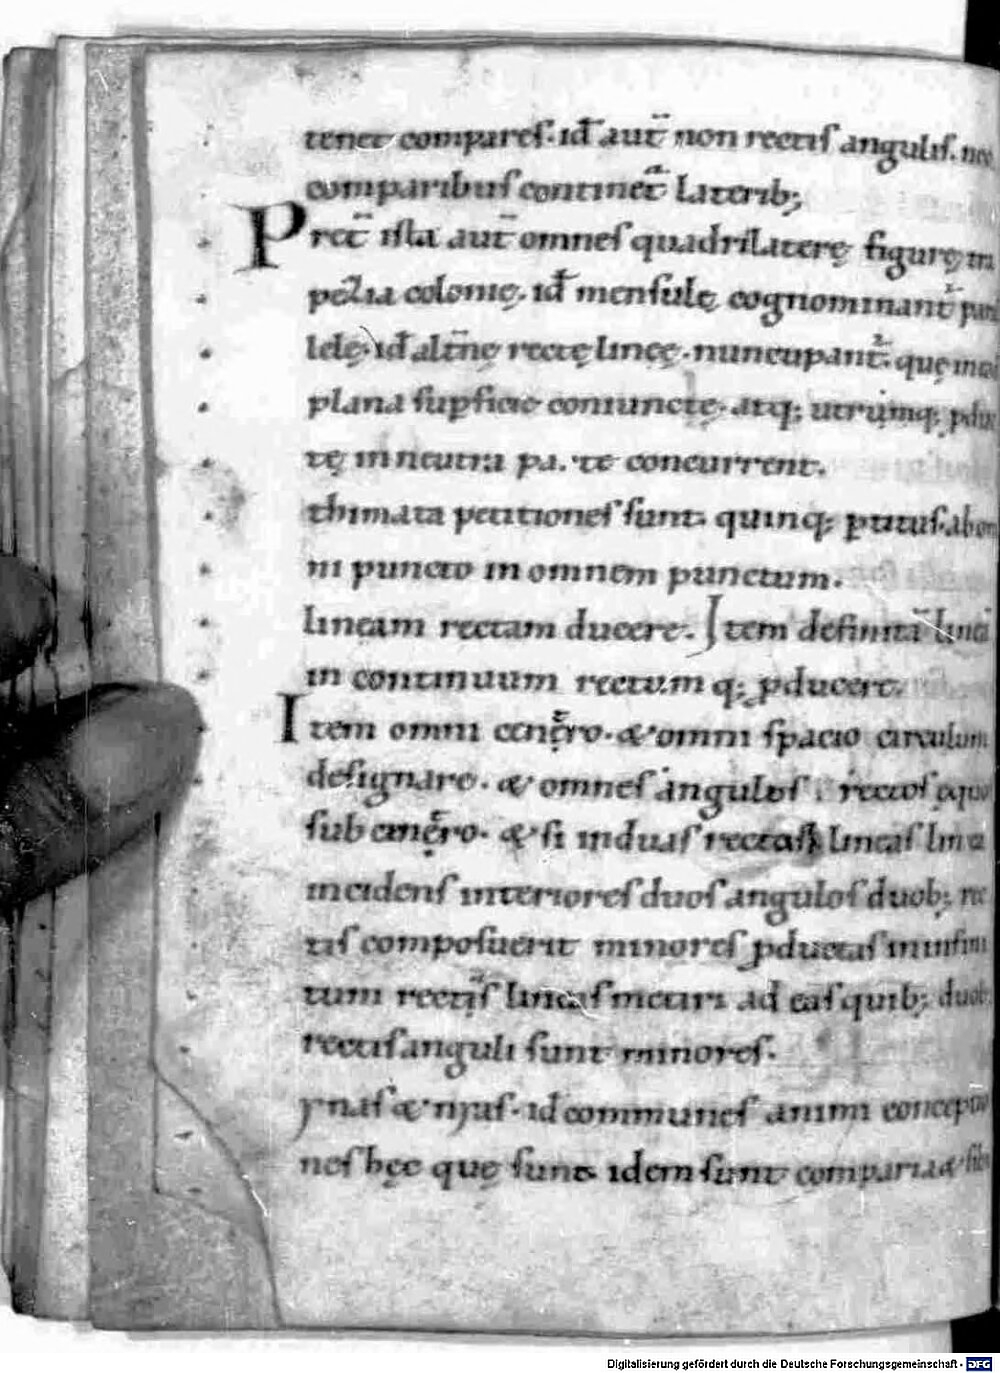 tenet compares. id̄ aut̄ non rectis angulis. nec
comparibus continet̄ laterib;
Pret̄ ista aut̄ omnes quadrilaterę figurę
colonię. id̄ mensulę cognominant̄
lelę. id̄ alt̄nę rectę lineę. nuncupant̄. quę
plana supficie coniunctę. atq; utrimq;
tę in neutra pa. te concurrent.
thimata petitiones sunt. quinq;
ni puncto in omnem punctum.
lineam rectam ducere. Item definitā
in continuum rectum q; pducere.
Item omni centro. & omni spacio circulum
designare. & omnes angulos rectos
sub centro. & si in duas rectas lineas
incidens interiores duos angulos duob; rec
tis composuerit minores pductas in infini
tum rectas lineas metiri ad eas quib; duob;
rectis anguli sunt minores.
ynas & njas. id̄ communes animi conceptio
nes hęc quę sunt idem sunt comparia &
Digitalisierung gefördert durch die Deutsche Forschungsgemeinschaft - DFG